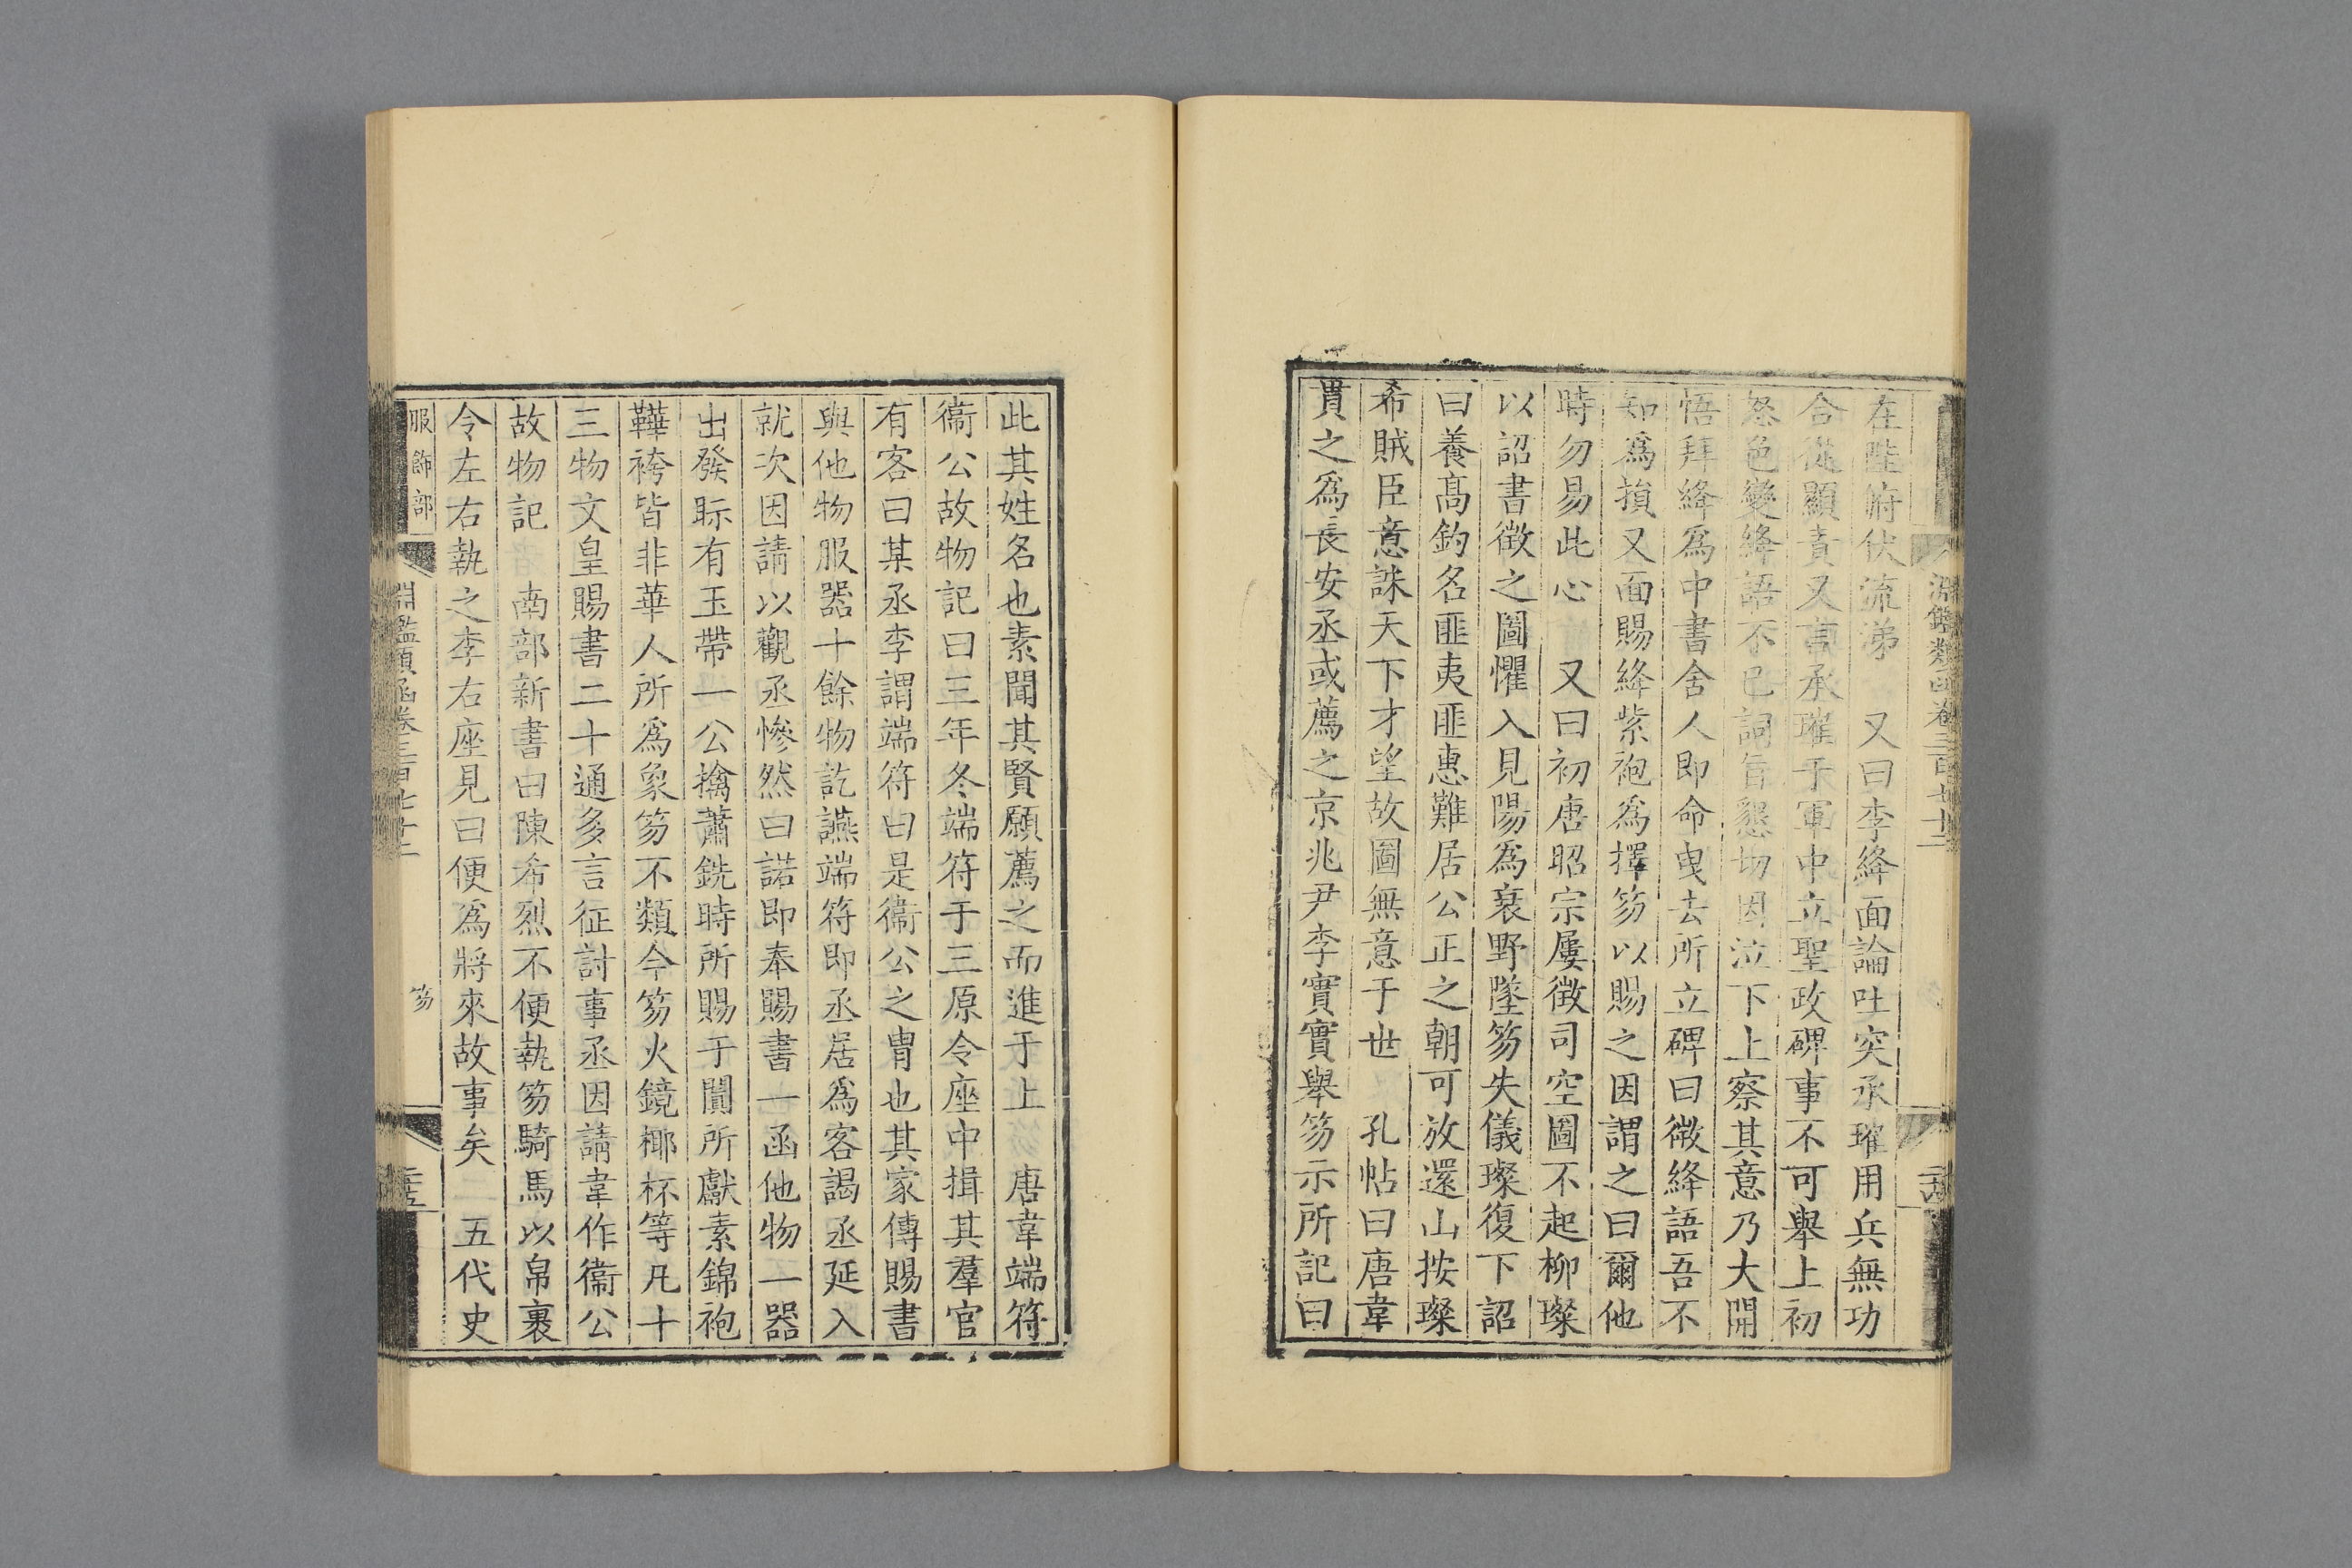 淵鑑類函卷三百七十二
在陛俯伏流涕　又曰李絳面論吐突承璀用兵無功
合從顯責又言承璀于軍中立聖政碑事不可舉上初
怒色變絳語不已詞旨懇切因泣下上察其意乃大開
悟拜絳爲中書舍人即命曳去所立碑曰微絳語吾不
知爲損又面賜絳紫袍爲擇笏以賜之因謂之曰爾他
時勿易此心　又曰初唐昭宗屢徵司空圖不起柳璨
以詔書徵之圖懼入見陽爲衰野墜笏失儀璨復下詔
曰養高釣名匪夷匪惠難居公正之朝可放還山按璨
希賊臣意誅天下才望故圖無意于世　孔帖曰唐韋
貫之爲長安丞或薦之京兆尹李實實舉笏示所記曰
此其姓名也素聞其賢願薦之而進于上　唐韋端符
衞公故物記曰三年冬端符于三原令座中揖其羣官
有客曰某丞李謂端符曰是衞公之胄也其家傳賜書
與他物服器十餘物訖讌端符即丞居爲客謁丞延入
就次因請以觀丞慘然曰諾即奉賜書一函他物一器
出發眎有玉帶一公擒蕭銑時所賜于闐所獻素錦袍
鞾袴皆非華人所爲象笏不類今笏火鏡椰杯等凡十
三物文皇賜書二十通多言征討事丞因請韋作衞公
故物記　南部新書曰陳希烈不便執笏騎馬以帛裹
令左右執之李右座見曰便爲將來故事矣　五代史
服飾部
淵鑑類函卷三百七十二
笏